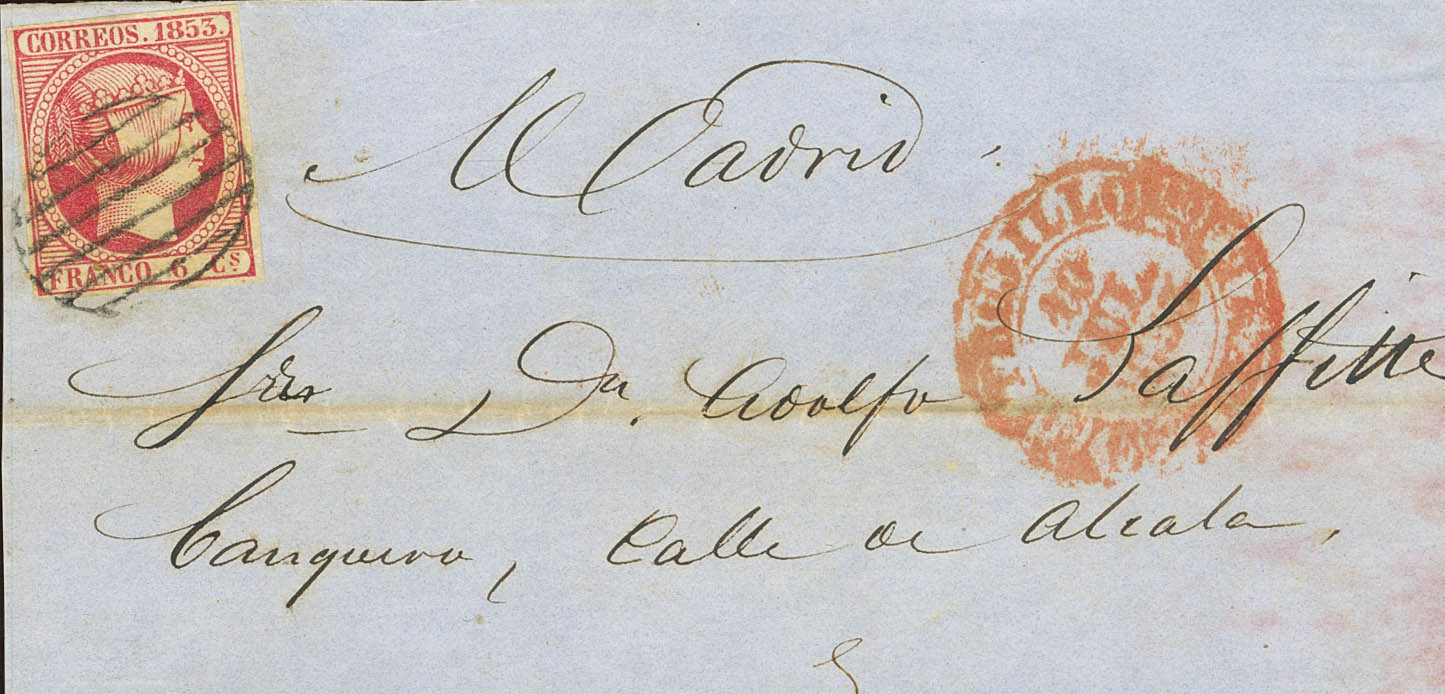 CORREOS. 1853.
FRANCO 6 Cs
Madrid
Sr. Dn. Adolfo Laffitte
Banquero, Calle de Alcala,
10
JUL.